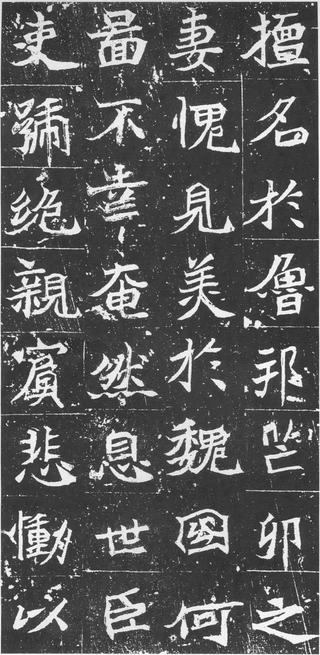 擅名於魯邦芒卯之
妻愧見美於魏國何
啚不幸奄然息世臣
吏號絶親賓悲慟以